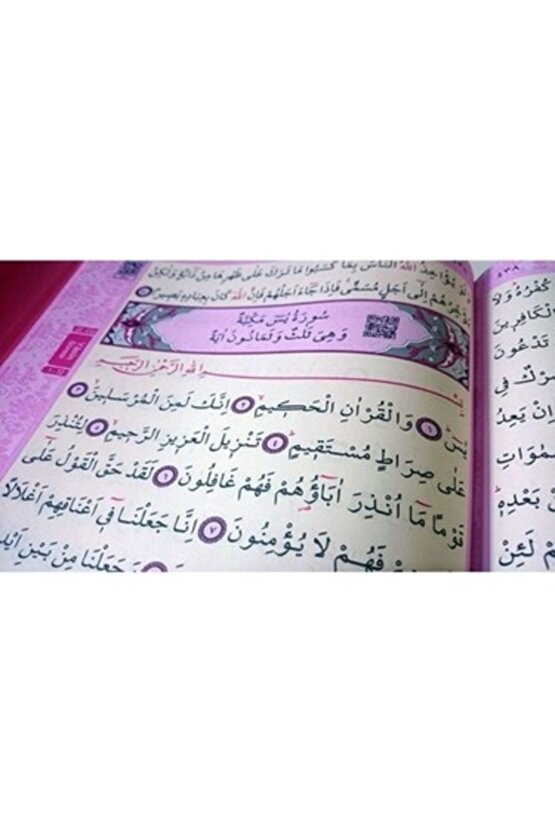 يُؤَاخِذُ اللّٰهُ النَّاسَ بِمَا كَسَبُوا مَا تَرَكَ عَلٰى ظَهْرِهَا مِنْ دَٓابَّةٍ وَلٰكِنْ
يُؤَخِّرُهُمْ اِلٰٓى اَجَلٍ مُسَمًّى فَاِذَا جَٓاءَ اَجَلُهُمْ فَاِنَّ اللّٰهَ كَانَ بِعِبَادِهِ بَصِيرًا
سُورَةُ يٰسٓ مَكِّيَّةٌ
وَهِيَ ثَلٰثٌ وَثَمَانُونَ اٰيَةً
بِسْمِ اللّٰهِ الرَّحْمٰنِ الرَّحِيمِ
يٰسٓ ﴿١﴾ وَالْقُرْاٰنِ الْحَكِيمِ ﴿٢﴾ اِنَّكَ لَمِنَ الْمُرْسَلِينَ ﴿٣﴾
عَلٰى صِرَاطٍ مُسْتَقِيمٍ ﴿٤﴾ تَنْزِيلَ الْعَزِيزِ الرَّحِيمِ ﴿٥﴾ لِتُنْذِرَ
قَوْمًا مَٓا اُنْذِرَ اٰبَٓاؤُهُمْ فَهُمْ غَافِلُونَ ﴿٦﴾ لَقَدْ حَقَّ الْقَوْلُ عَلٰٓى
فَهُمْ لَا يُؤْمِنُونَ ﴿٧﴾ اِنَّا جَعَلْنَا فِٓي اَعْنَاقِهِمْ اَغْلَالًا
وَجَعَلْنَا مِنْ بَيْنِ
٤٣٨
كُفْرُهُ وَلَا
الْكَافِرِينَ
تَدْعُونَ
شِرْكٌ فِي
اِنْ يَعِدُ
بَعْدِهِ
لَئِنْ